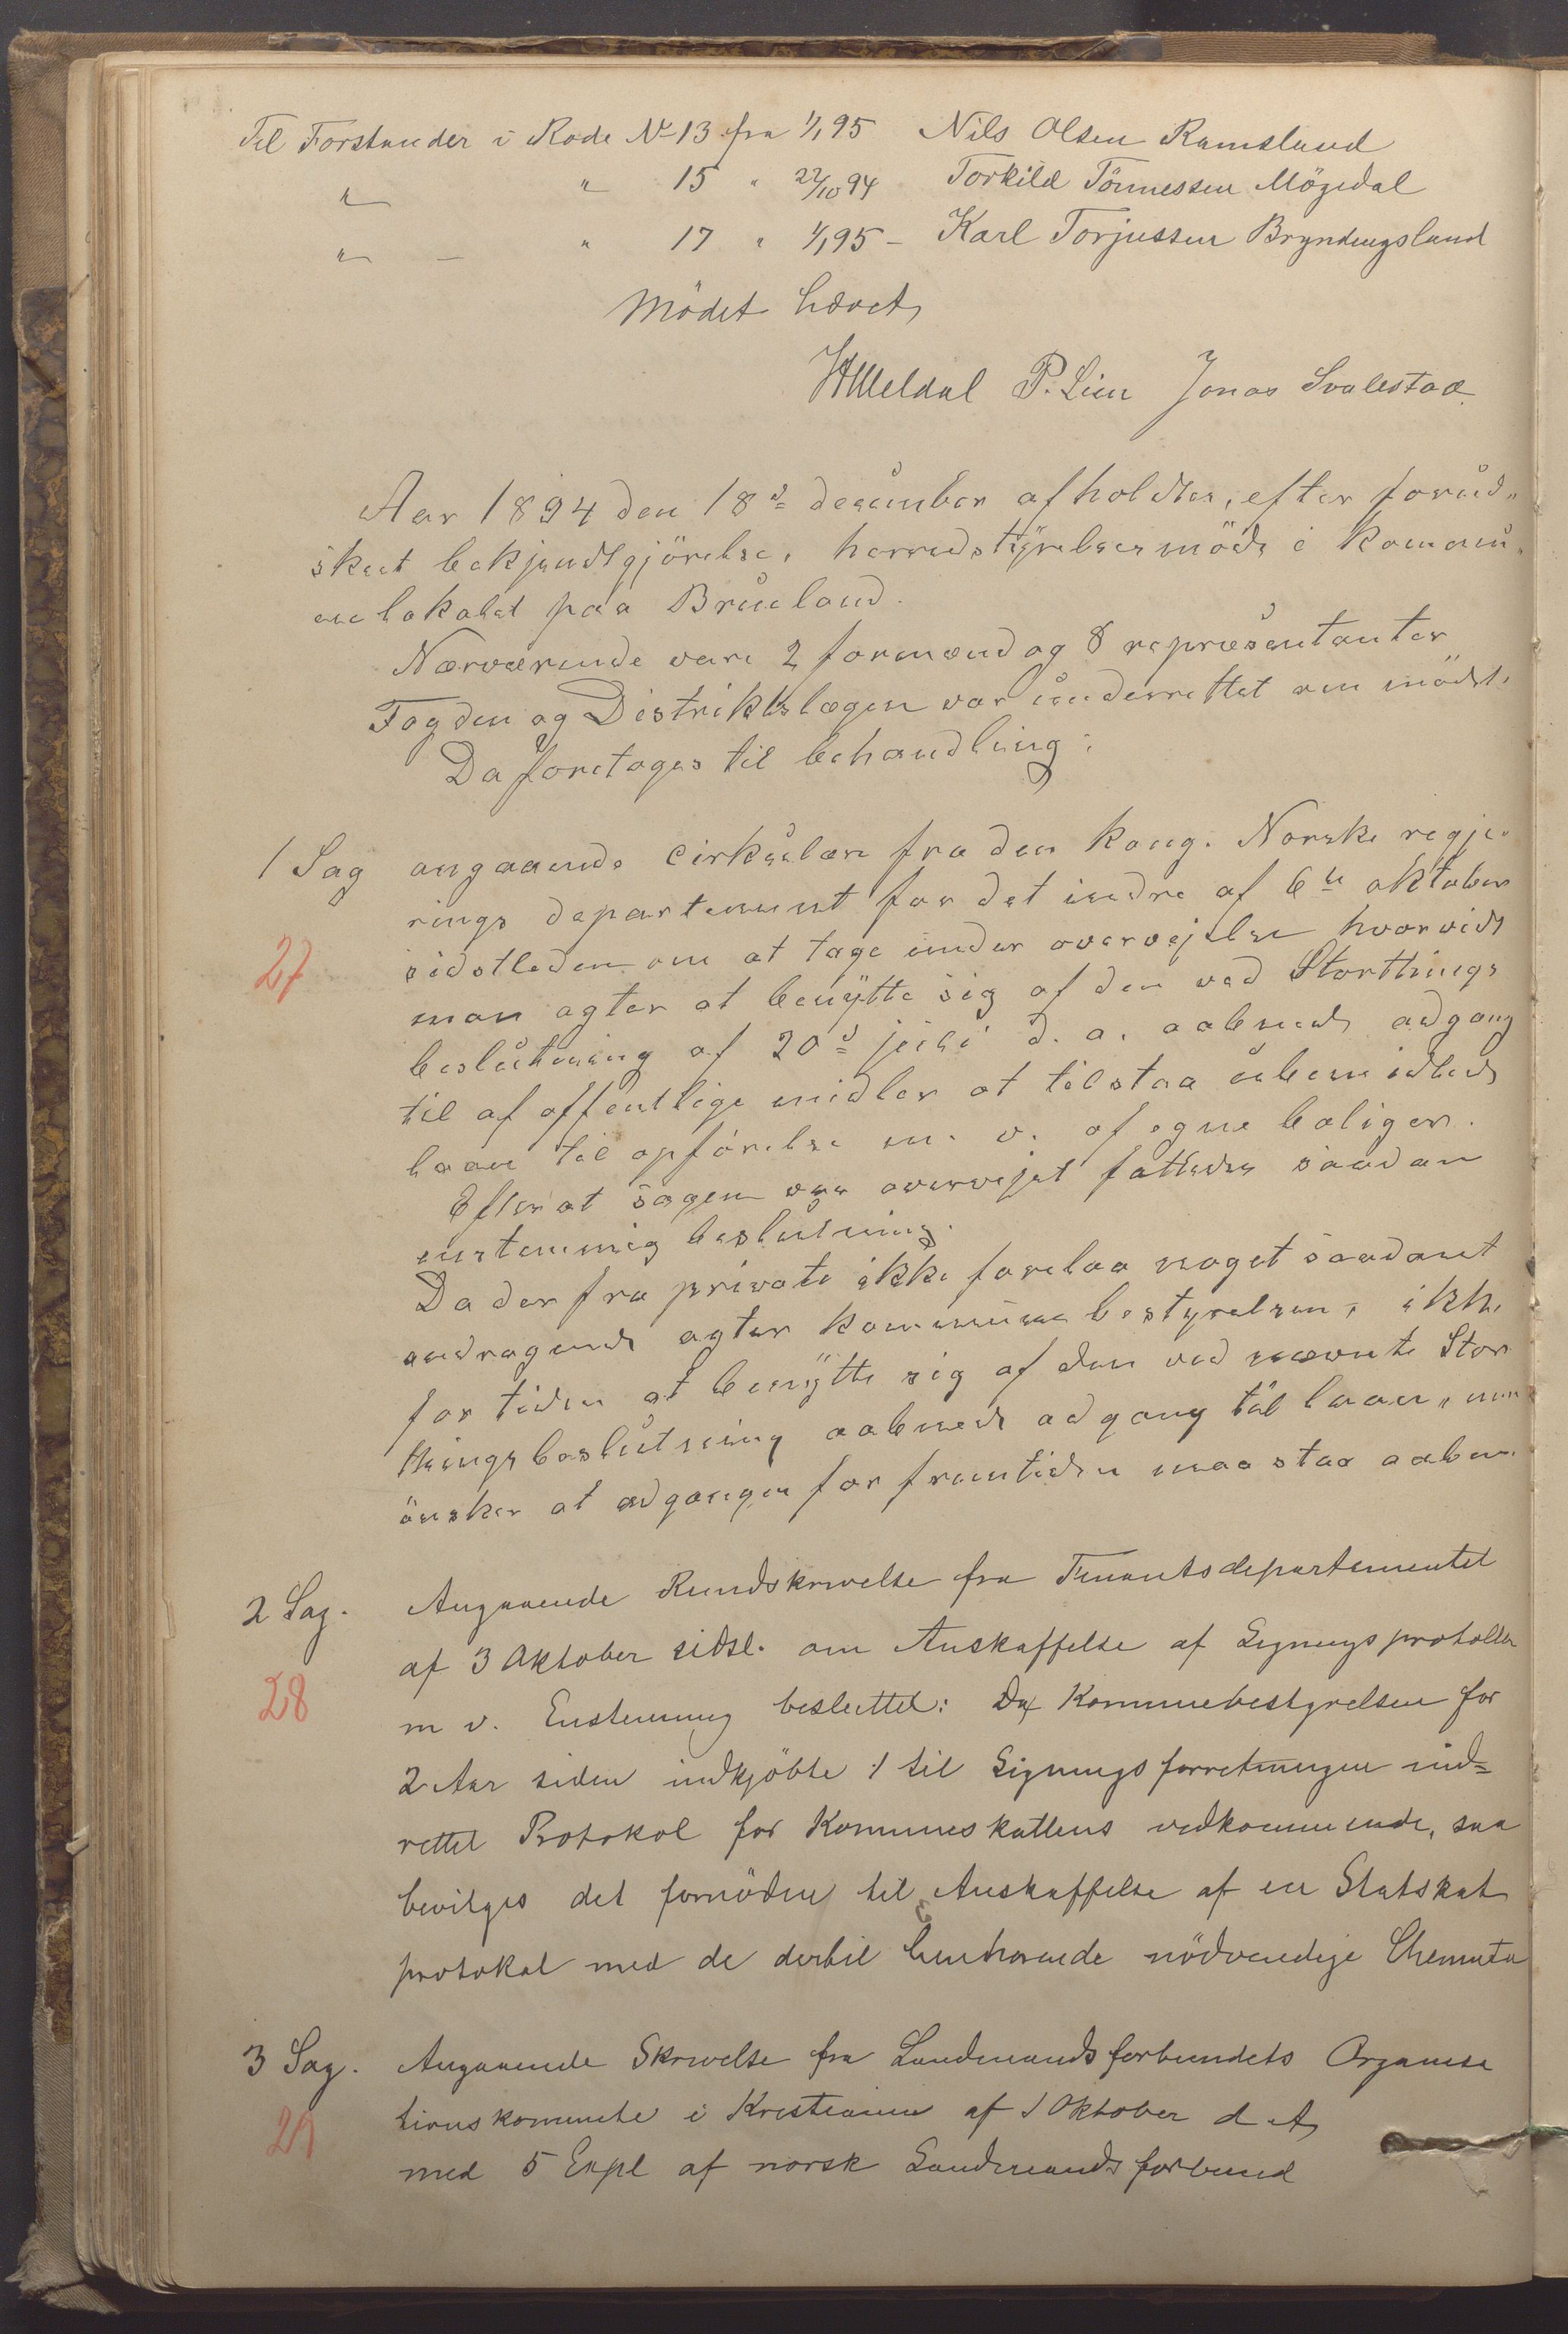 Til Forstander i Rode No 13 fra 1/1 95 Nils Olsen Ramsland
" " 15 " 22/10 94 Torkild Tönnessen Mögedal
" - " 17 " 1/1 95 - Karl Torjussen Bryndingsland
Mödet hævet
P. Lien Jonas Svalestad
Aar 1894 den 18d desember afholdtes, efter forud-
skeet bekjendtgjörelse, herredstyrelsesmöde i kommu-
nelokalet paa Brueland.
Nærværende vare 2 formænd og 8 repræsentanter
Fogden og Distriktslægen var underrettet om mödet.
Da foretoges til behandling:
1 Sag angaaende cirkulære fra den kong. Norske regje-
rings departement for det indre af 6te oktober
27 sidstleden om at tage under overvejelse hvorvidt
man agter at benytte sig af den ved Storthings
beslutning af 20d juli d. a. aabnede adgang
til af offentlige midler at tilstaa ubemidlede
laan til opförelse m. v. af egne boliger.
Efter at sagen var overvejet fattedes saadan
enstemmig beslutning.
Da der fra private ikke forelaa noget saadant
andragende agter kommunebestyrelsen, ikke
for tiden at benytte sig af den ved nævnte Stor-
thingsbeslutning aabnede adgang til laan, men
önsker at adgangen for fremtiden maa staa aaben.
2 Sag. Angaaende Rundskrivelse fra Finantsdepartementet
af 3 Oktober sidsl. om Anskaffelse af Ligningsprotokller
28 m v. Enstemmig besluttet: Da Kommunebestyrelsen for
2 Aar siden indkjöbte 1 til Ligningsforretningen ind=
rettet Protokol for Kommuneskattens vedkommende, saa
bevilges det fornödne til Anskaffelse af en Statskat
protokol med de dertil henhörende nödvendige Skemata
3 Sag. Angaaende Skrivelse fra Landmandsforbundets Organisa
29 tionskommite i Kristiania af 1 Oktober d A
med 5 Expl af norsk Landmandsforbund